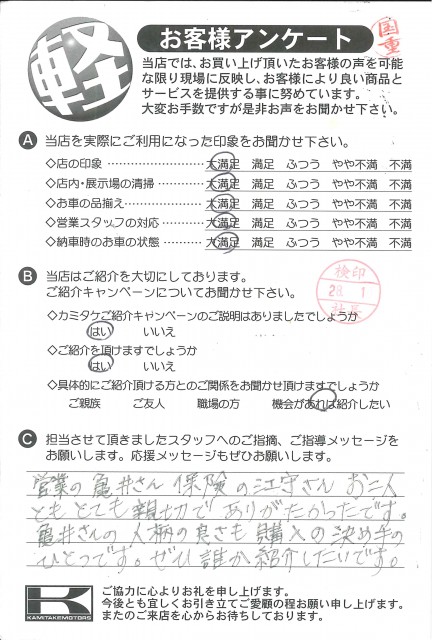 軽
お客様アンケート
国重
当店では、お買い上げ頂いたお客様の声を可能
な限り現場に反映し、お客様により良い商品と
サービスを提供する事に努めています。
大変お手数ですが是非お声をお聞かせ下さい。
A 当店を実際にご利用になった印象をお聞かせ下さい。
◇店の印象 …………………… 大満足 満足 ふつう やや不満 不満
◇店内・展示場の清掃………… 大満足 満足 ふつう やや不満 不満
◇お車の品揃え………………… 大満足 満足 ふつう やや不満 不満
◇営業スタッフの対応………… 大満足 満足 ふつう やや不満 不満
◇納車時のお車の状態………… 大満足 満足 ふつう やや不満 不満
B 当店はご紹介を大切にしております。
ご紹介キャンペーンについてお聞かせ下さい。
検印
28. 1
社長
◇カミタケご紹介キャンペーンのご説明はありましたでしょうか
はい いいえ
◇ご紹介を頂けますでしょうか
はい いいえ
◇具体的にご紹介頂ける方とのご関係をお聞かせ頂けますでしょうか
ご親族 ご友人 職場の方 機会があれば紹介したい
C 担当させて頂きましたスタッフへのご指摘、ご指導メッセージを
お願いします。応援メッセージもぜひお願いします。
営業の亀井さん 保険の江守さん お二人
ともとても親切で ありがたかったです。
亀井さんの人柄の良さも 購入の決め手の
ひとつです。ぜひ 誰か紹介したいです。
K
KAMITAKEMOTORS
ご協力に心よりお礼を申し上げます。
今後とも宜しくお引き立てご愛顧の程お願い申し上げます。
またのご来店を心からお待ちしております。